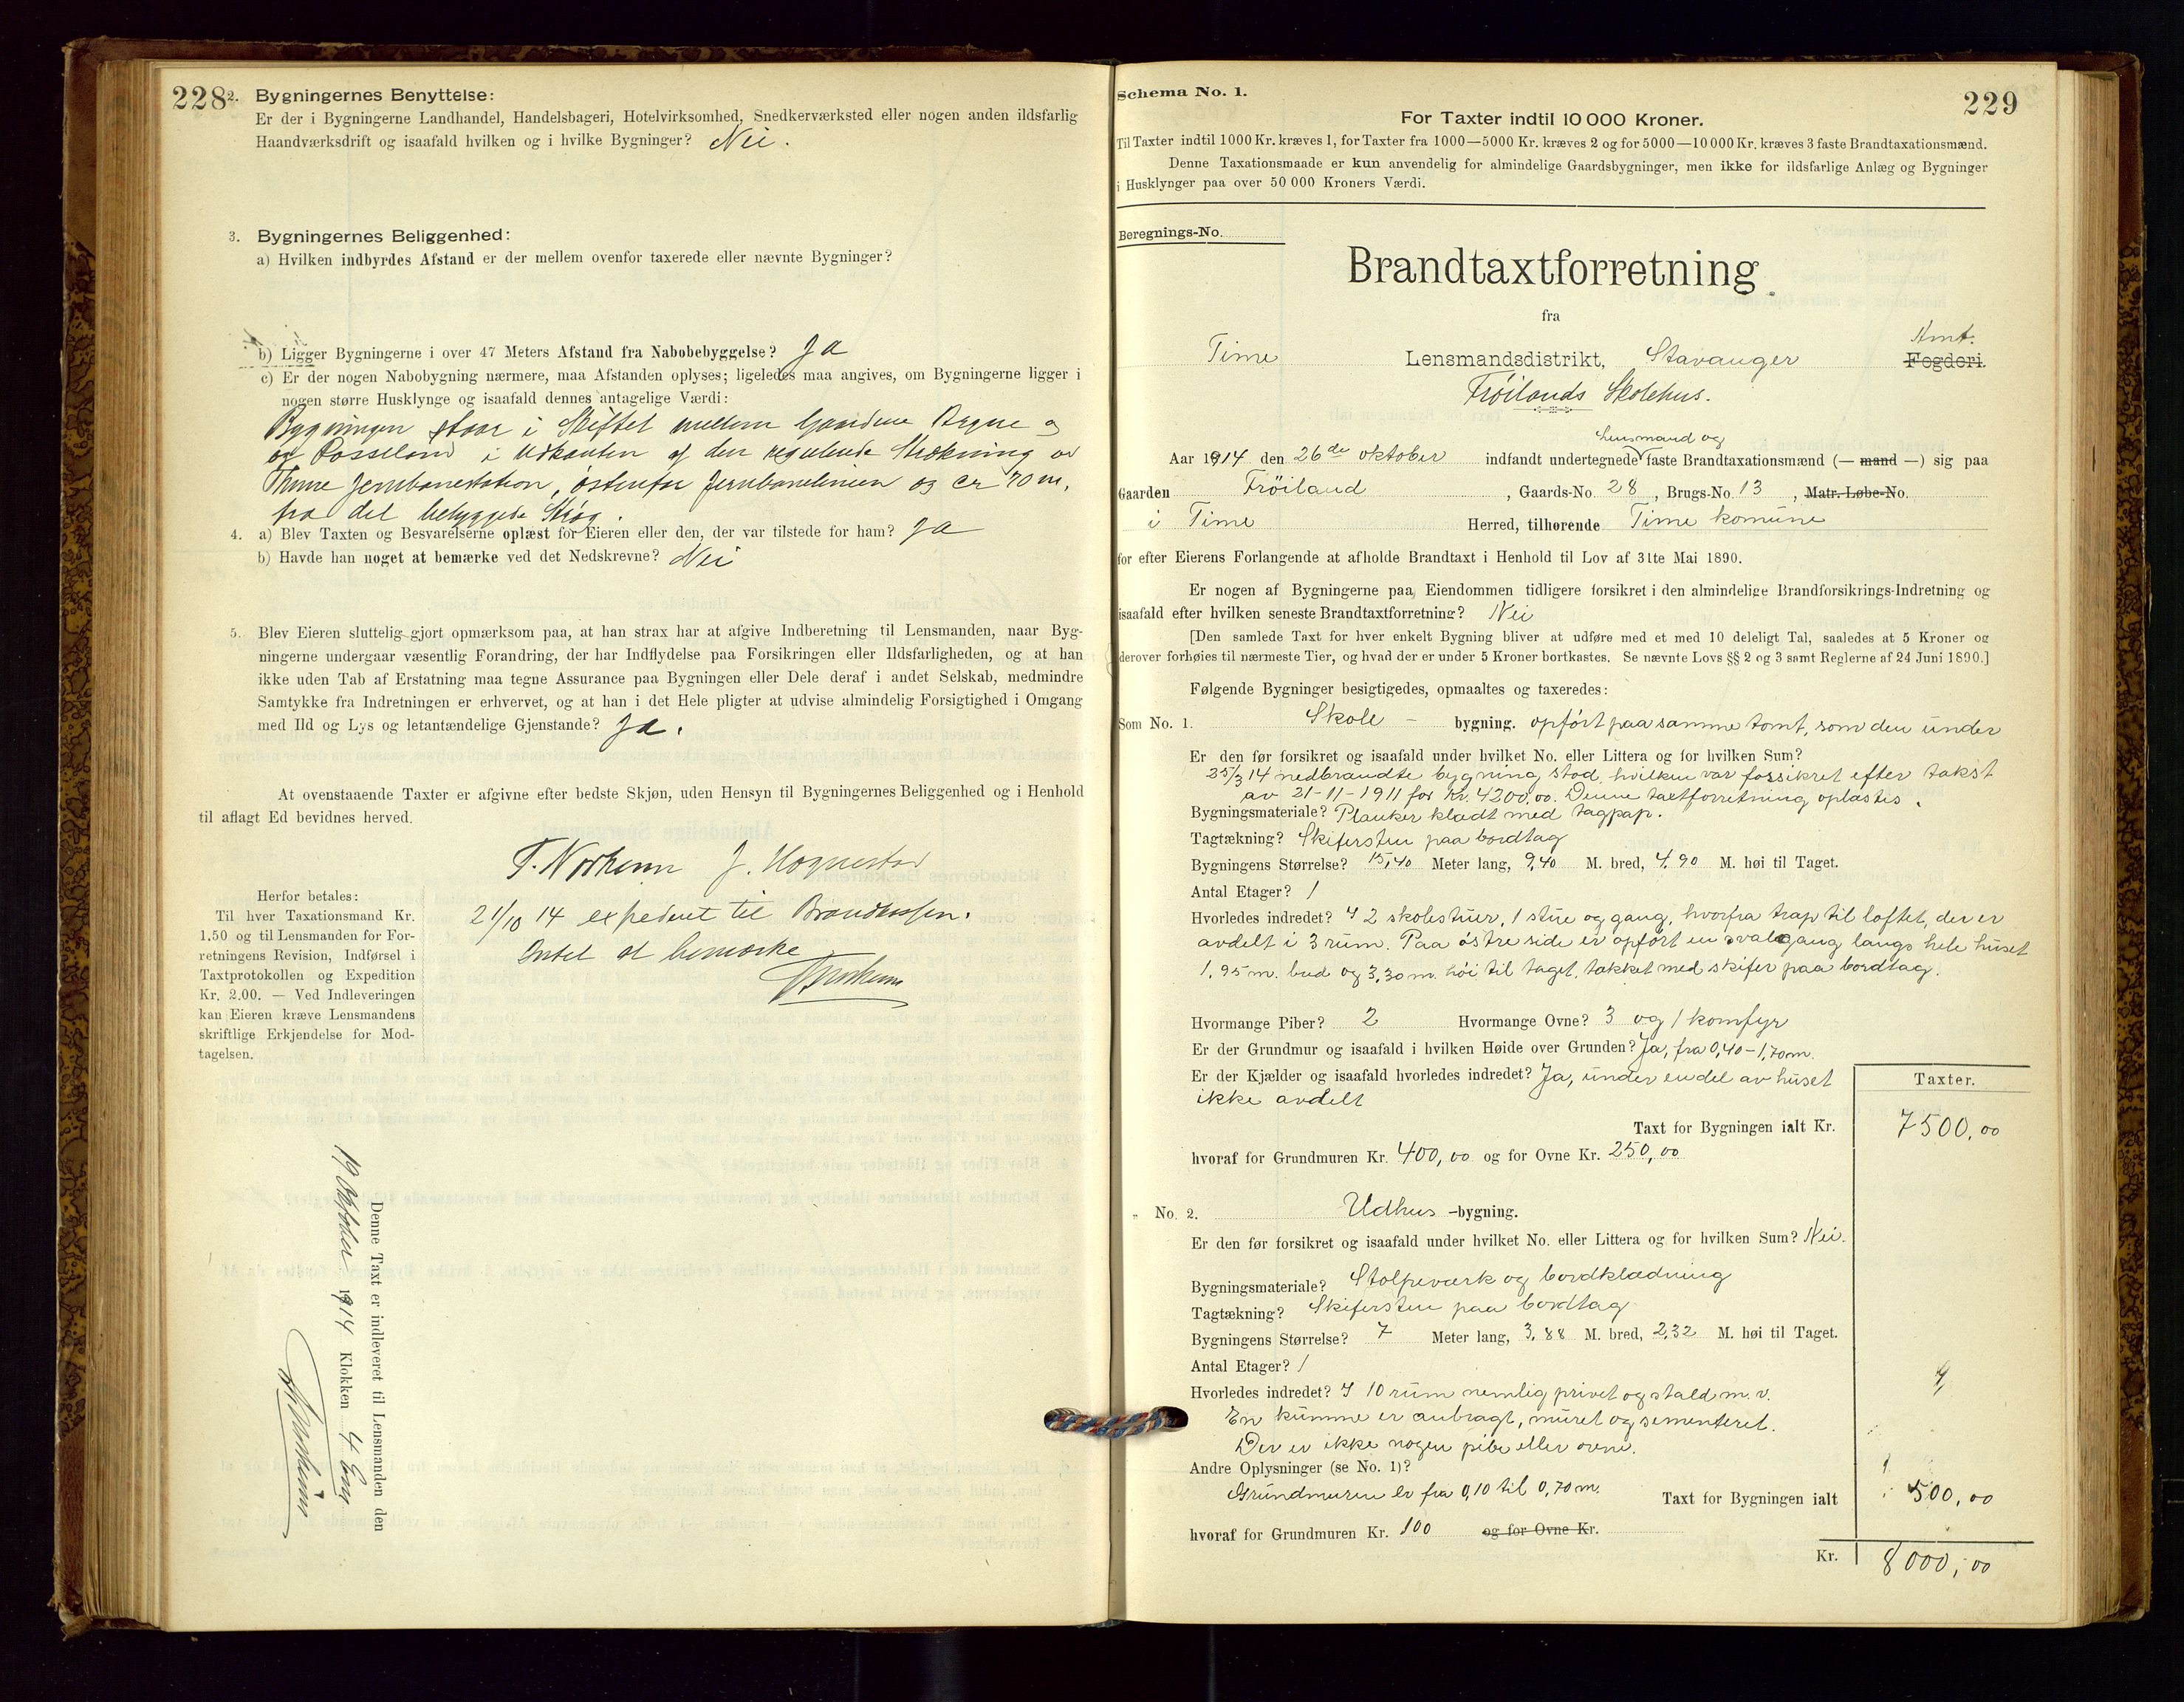 228
2. Bygningernes Benyttelse:
Er der i Bygningerne Landhandel, Handelsbageri, Hotelvirksomhed, Snedkerværksted eller nogen anden ildsfarlig
Haandværksdrift og isaafald hvilken og i hvilke Bygninger? Nei.
3. Bygningernes Beliggenhed:
a) Hvilken indbyrdes Afstand er der mellem ovenfor taxerede eller nævnte Bygninger?
b) Ligger Bygningerne i over 47 Meters Afstand fra Nabobebyggelse? Ja
c) Er der nogen Nabobygning nærmere, maa Afstanden oplyses; ligeledes maa angives, om Bygningerne ligger i
nogen større Husklynge og isaafald dennes antagelige Værdi:
Bygningen staar i Skiftet mellem Gaardene og
og Rosseland i Udkanten af den regulerede Strækning ved
Thime Jernbanestation, østenfor Jernbanelinien og ca 70 m.
fra det bebyggede Strøg.
4. a) Blev Taxten og Besvarelserne oplæst for Eieren eller den, der var tilstede for ham? Ja
b) Havde han noget at bemærke ved det Nedskrevne? Nei
5. Blev Eieren sluttelig gjort opmærksom paa, at han strax har at afgive Indberetning til Lensmanden, naar Byg-
ningerne undergaar væsentlig Forandring, der har Indflydelse paa Forsikringen eller Ildsfarligheden, og at han
ikke uden Tab af Erstatning maa tegne Assurance paa Bygningen eller Dele deraf i andet Selskab, medmindre
Samtykke fra Indretningen er erhvervet, og at han i det Hele pligter at udvise almindelig Forsigtighed i Omgang
med Ild og Lys og letantændelige Gjenstande? Ja.
At ovenstaaende Taxter er afgivne efter bedste Skjøn, uden Hensyn til Bygningernes Beliggenhed og i Henhold
til aflagt Ed bevidnes herved.
T. Norheim J. Hognestad
21/10 14 expederet til Brandkassen.
Intet at bemærke
T. Norheim
Herfor betales:
Til hver Taxationsmand Kr.
1.50 og til Lensmanden for For-
retningens Revision, Indførsel i
Taxtprotokollen og Expedition
Kr. 2.00. — Ved Indleveringen
kan Eieren kræve Lensmandens
skriftlige Erkjendelse for Mod-
tagelsen.
Denne Taxt er indleveret til Lensmanden den
19 Oktober 1914 Klokken 4 Em
T. Norheim
Schema No. 1.
229
For Taxter indtil 10 000 Kroner.
Til Taxter indtil 1000 Kr. kræves 1, for Taxter fra 1000—5000 Kr. kræves 2 og for 5000—10 000 Kr. kræves 3 faste Brandtaxationsmænd.
Denne Taxationsmaade er kun anvendelig for almindelige Gaardsbygninger, men ikke for ildsfarlige Anlæg og Bygninger
i Husklynger paa over 50 000 Kroners Værdi.
Beregnings-No.
Brandtaxtforretning
fra
Amt.
Time Lensmandsdistrikt, Stavanger Fogderi.
Frøilands Skolehus.
lensmand og
Aar 1914 den 26de oktober indfandt undertegnede faste Brandtaxationsmænd (— mand —) sig paa
Gaarden Frøiland, Gaards-No. 28, Brugs-No. 13, Matr. Løbe-No.
i Time Herred, tilhørende Time komune
for efter Eierens Forlangende at afholde Brandtaxt i Henhold til Lov af 31te Mai 1890.
Er nogen af Bygningerne paa Eiendommen tidligere forsikret i den almindelige Brandforsikrings-Indretning og
isaafald efter hvilken seneste Brandtaxtforretning? Nei
[Den samlede Taxt for hver enkelt Bygning bliver at udføre med et med 10 deleligt Tal, saaledes at 5 Kroner og
derover forhøies til nærmeste Tier, og hvad der er under 5 Kroner bortkastes. Se nævnte Lovs §§ 2 og 3 samt Reglerne af 24 Juni 1890.]
Følgende Bygninger besigtigedes, opmaaltes og taxeredes:
Som No. 1. Skole - bygning. opført paa samme tomt, som den under
Er den før forsikret og isaafald under hvilket No. eller Littera og for hvilken Sum?
25/3 14 nedbrandte bygning stod, hvilken var forsikret efter takst
av 21-11-1911 for Kr. 4200,00. Denne taxtforretning oplæstes.
Bygningsmateriale? Planker klædt med tagpap.
Tagtækning? Skifersten paa bordtag
Bygningens Størrelse? 15,40 Meter lang, 9,40 M. bred, 4,90 M. høi til Taget.
Antal Etager? 1
Hvorledes indredet? I 2 skolestuer, 1 stue og gang, hvorfra trap til loftet, der er
avdelt i 3 rum. Paa østre side er opført en svalegang langs hele huset
1,95 m. bred og 3,30 m. høi til taget, tækket med skifer paa bordtag.
Hvormange Piber? 2 Hvormange Ovne? 3 og 1 komfyr
Er der Grundmur og isaafald i hvilken Høide over Grunden? Ja, fra 0,40-1,70 m.
Er der Kjælder og isaafald hvorledes indredet? Ja, under endel av huset
ikke avdelt
Taxter.
Taxt for Bygningen ialt Kr. 7500,00
hvoraf for Grundmuren Kr. 400,00 og for Ovne Kr. 250,00
" No. 2. Udhus -bygning.
Er den før forsikret og isaafald under hvilket No. eller Littera og for hvilken Sum? Nei.
Bygningsmateriale? Stolpeværk og bordklædning
Tagtækning? Skifersten paa bordtag
Bygningens Størrelse? 7 Meter lang, 3,88 M. bred, 2,32 M. høi til Taget.
Antal Etager? 1
Hvorledes indredet? I 10 rum nemlig privet og stald m.v.
En kumme er anbragt, muret og sementeret.
Der er ikke nogen pibe eller ovne.
Andre Oplysninger (se No. 1)?
Grundmuren er fra 0,10 til 0,70 m. Taxt for Bygningen ialt 500,00
hvoraf for Grundmuren Kr. 100 og for Ovne Kr.
Kr. 8000,00